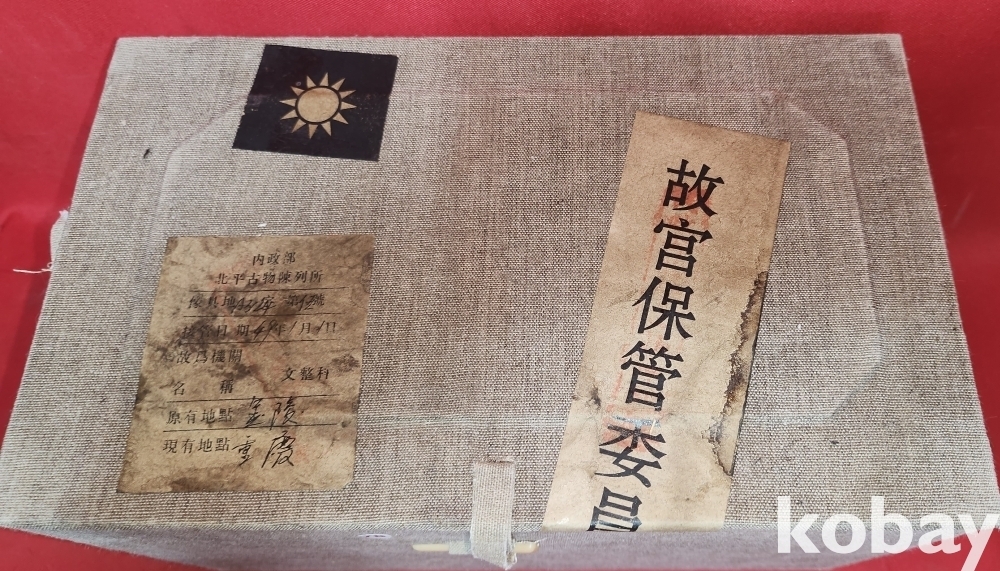 故宮保管委員
內政部
北平古物陳列所
號
年1月1日
機關
文整科
名 稱
原有地點 金陵
現有地點 重慶
kobay